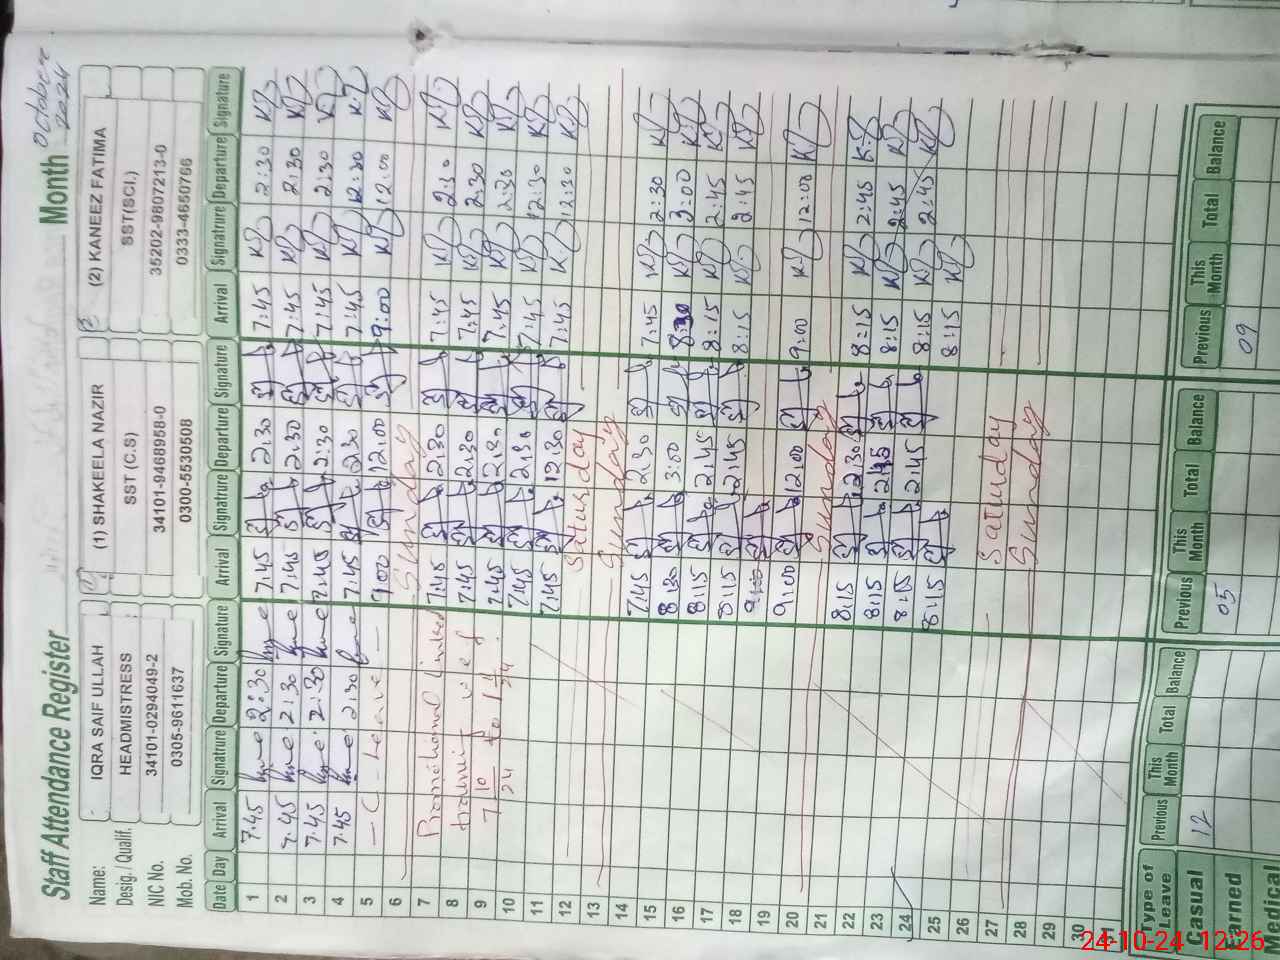 Staff Attendance Register Month October 2024
Name: IQRA SAIF ULLAH (1) SHAKEELA NAZIR (2) KANEEZ FATIMA
Desig./ Qualif. HEADMISTRESS SST (C.S) SST(SCI.)
NIC No. 34101-0294049-2 34101-9468958-0 35202-9807213-0
Mob. No. 0305-9611637 0300-5530508 0333-4650766
Date Day Arrival Signature Departure Signature Arrival Signature Departure Signature Arrival Signatrure Departure Signature
1 7:45 2:30 7:45 2:30 7:45 2:30
2 7:45 2:30 7:45 2:30 7:45 2:30
3 7:45 2:30 7:45 2:30 7:45 2:30
4 7:45 2:30 7:45 2:30 7:45 12:30
5 C - Leave 9:00 12:00 9:00 12:00
6 Sunday
7 Promotional linked 7:45 2:30 7:45 2:30
8 training 7:45 2:30 7:45 2:30
9 7:45 2:30 7:45 2:30
10 7:45 2:30 7:45 12:30
11 7:45 12:30 7:45 12:30
12 Saturday
13 Sunday
14 7:45 2:30 7:45 2:30
15 8:30 3:00 8:30 3:00
16 8:15 2:45 8:15 2:45
17 8:15 2:45 8:15 2:45
18
19 9:00 12:00 9:00 12:00
20 Sunday
21 8:15 2:30 8:15 2:45
22 8:15 2:45 8:15 2:45
23 8:15 2:45 8:15 2:45
24 8:15 8:15
25
26 Saturday
27 Sunday
28
29
30
31
Type of Leave Previous This Month Total Balance Previous This Month Total Balance Previous This Month Total Balance
Casual 12 05 09
Earned
Medical
24-10-24 12:26